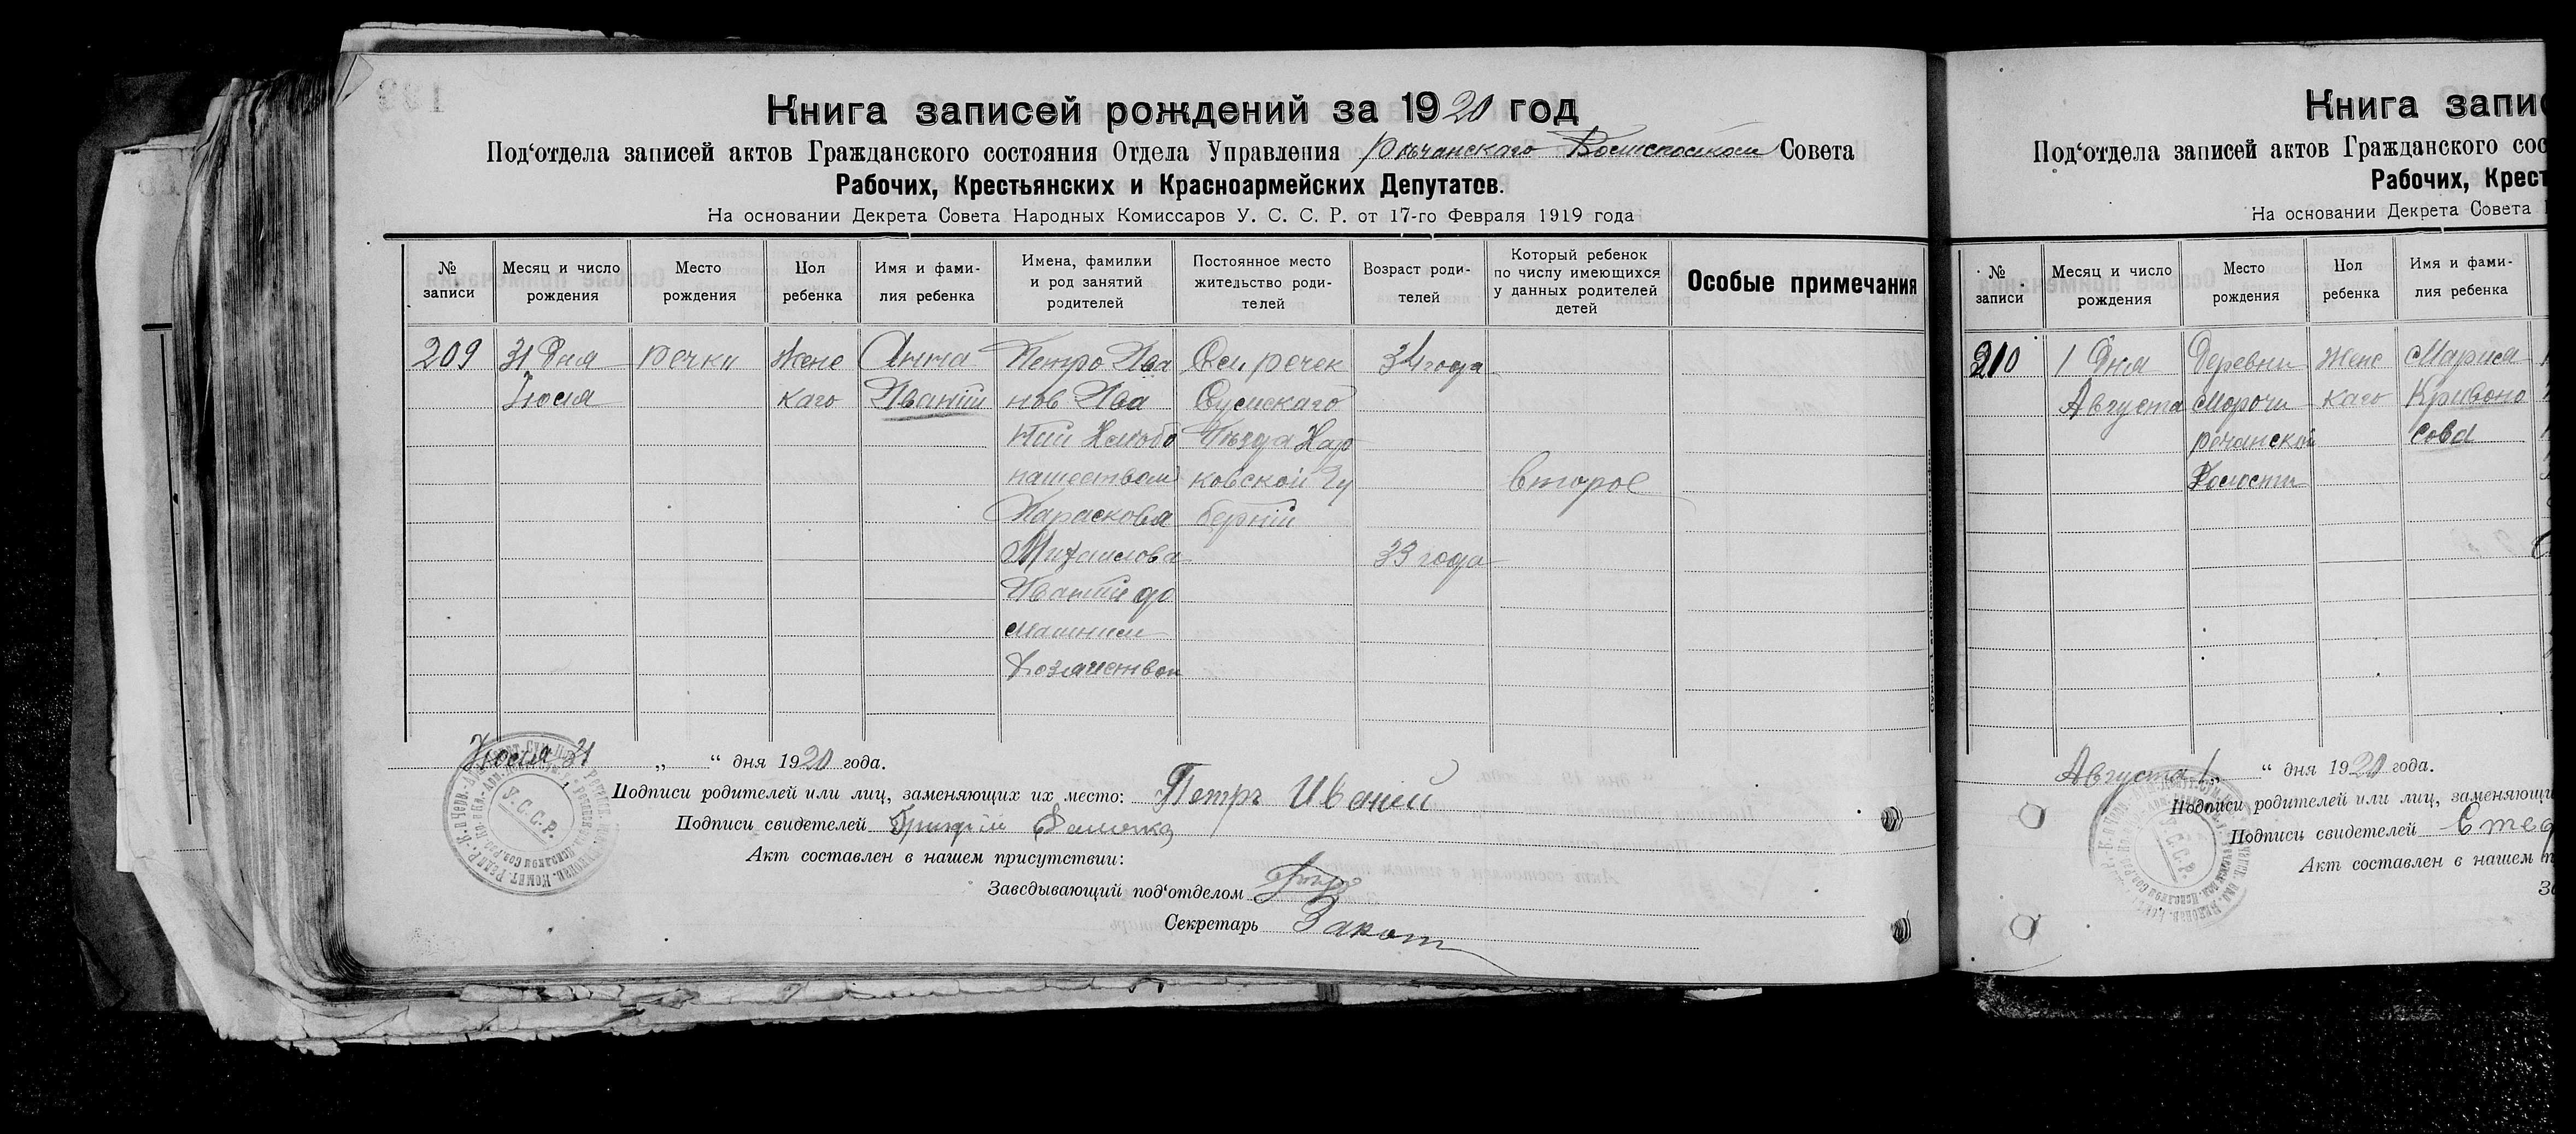 Книга записей рождений за 1920 год
Под‘отдела записей актов Гражданского состояния Отдела Управления Рѣчанскаго Совета
Рабочих, Крестьянских и Красноармейских Депутатов.
На основании Декрета Совета Народных Комиссаров У. С. С. Р. от 17-го Февраля 1919 года
№ записи
Месяц и число рождения
Место рождения
Пол ребенка
Имя и фами-
лия ребенка
Имена, фамилии
и род занятий
родителей
Постоянное место
жительство роди-
телей
Возраст роди-
телей
Который ребенок
по числу имеющихся
у данных родителей
детей
Особые примечания
209 31 Дня речки Женс Анна Петро Ива Сел. речек 34 года
Июля каго Иваній нов Ива Сумскаго
ній Хлѣбо Уѣзда Хар
пашеством ковской Гу второе
Параскова берніи
Михаилова 33 года
Иваній до
машним
хозяйством
Июля 31 „ “ дня 1920 года.
Подписи родителей или лиц, заменяющих их место: Петръ Иваней
Подписи свидетелей
Акт составлен в нашем присутствии:
Заведывающий под‘отделом
Секретарь
У.С.С.Р.
Книга запис
Под‘отдела записей актов Гражданского сос
Рабочих, Крест
На основании Декрета Совета
№ записи
Месяц и число рождения
Место рождения
Пол ребенка
Имя и фами-
лия ребенка
210 1 Дня Деревни Женс Мария
Августа Морочи каго Кривоно
речанской сова
Волости
Августа 1 „ “ дня 1920 года.
Подписи родителей или лиц, заменяющи
Подписи свидетелей Стеф
Акт составлен в нашем п
За